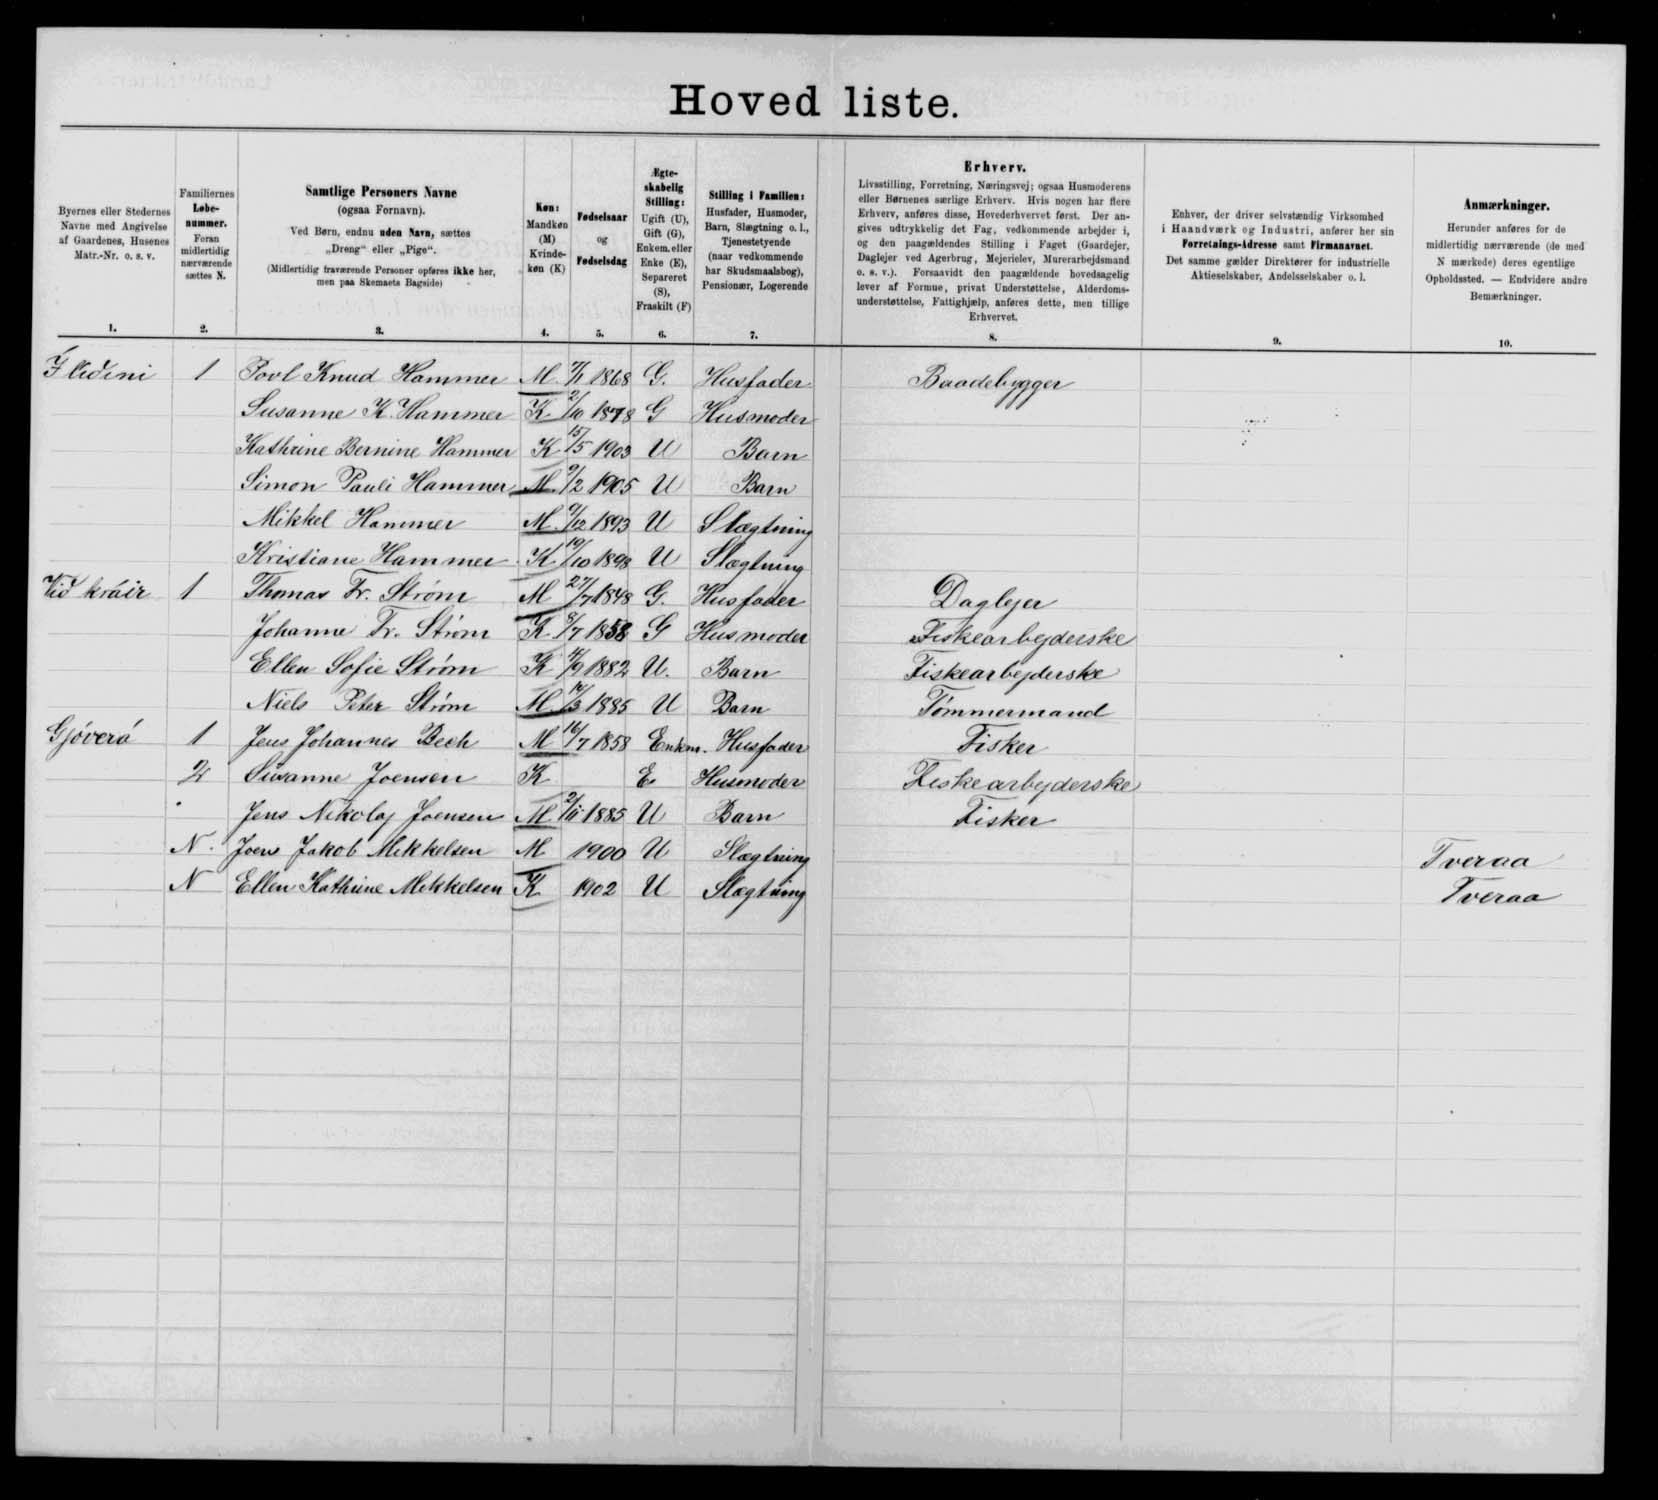 Hoved liste.
Byernes eller Stedernes
Navne med Angivelse
af Gaardenes, Husenes
Matr.-Nr. o. s. v.
1.
Familiernes
Løbe-
nummer.
Foran
midlertidig
nærværende
sættes N.
2.
Samtlige Personers Navne
(ogsaa Fornavn).
Ved Børn, endnu uden Navn, sættes
„Dreng“ eller „Pige“.
(Midlertidig fraværende Personer opføres ikke her,
men paa Skemaets Bagside)
3.
Køn:
Mandkøn
(M)
Kvinde-
køn (K)
4.
Fødselsaar
og
Fødselsdag
5.
Ægte-
skabelig
Stilling:
Ugift (U),
Gift (G),
Enkem. eller
Enke (E),
Separeret
(S),
Fraskilt (F)
6.
Stilling i Familien:
Husfader, Husmoder,
Barn, Slægtning o. l.,
Tjenestetyende
(naar vedkommende
har Skudsmaalsbog),
Pensionær, Logerende
7.
Erhverv.
Livsstilling, Forretning, Næringsvej; ogsaa Husmoderens
eller Børnenes særlige Erhverv. Hvis nogen har flere
Erhverv, anføres disse, Hovederhvervet først. Der an-
gives udtrykkelig det Fag, vedkommende arbejder i,
og den paagældendes Stilling i Faget (Gaardejer,
Daglejer ved Agerbrug, Mejerielev, Murerarbejdsmand
o. s. v.). Forsaavidt den paagældende hovedsagelig
lever af Formue, privat Understøttelse, Alderdoms-
understøttelse, Fattighjælp, anføres dette, men tillige
Erhvervet.
8.
Enhver, der driver selvstændig Virksomhed
i Haandværk og Industri, anfører her sin
Forretnings-Adresse samt Firmanavnet.
Det samme gælder Direktører for industrielle
Aktieselskaber, Andelsselskaber o. l.
9.
Anmærkninger.
Herunder anføres for de
midlertidig nærværende (de med
N mærkede) deres egentlige
Opholdssted. — Endvidere andre
Bemærkninger.
10.
1 Povl Knud Hammer M. 1868 G. Husfader Baadebygger
Susanne K. Hammer K 2/10 1878 G Husmoder
Kathrine Bernine Hammer K 15/5 1903 U Barn
Simon Pauli Hammer M. 9/2 1905 U Barn
Mikkel Hammer M. 9/12 1893 U Slægtning
Kristiane Hammer K 19/10 1898 U Slægtning
Við kráir 1 Thomas Fr. Strøm M 27/7 1848 G. Husfader Daglejer
Johanne Fr. Strøm K 8/7 1858 G Husmoder Fiskearbejderske
Ellen Sofie Strøm K 1882 U. Barn Fiskearbejderske
Niels Peter Strøm M 1885 U Barn Tømmermand
Gjóverá 1 Jens Johannes Bech M 16/7 1858 Enkm. Husfader Fisker
2 Susanne Joensen K E Husmoder Fiskearbejderske
Jens Nikolaj Joensen M 2/11 1885 U Barn Fisker
N. Joen Jakob Mikkelsen M 1900 U Slægtning Tveraa
N Ellen Kathrine Mikkelsen K 1902 U Slægtning Tveraa